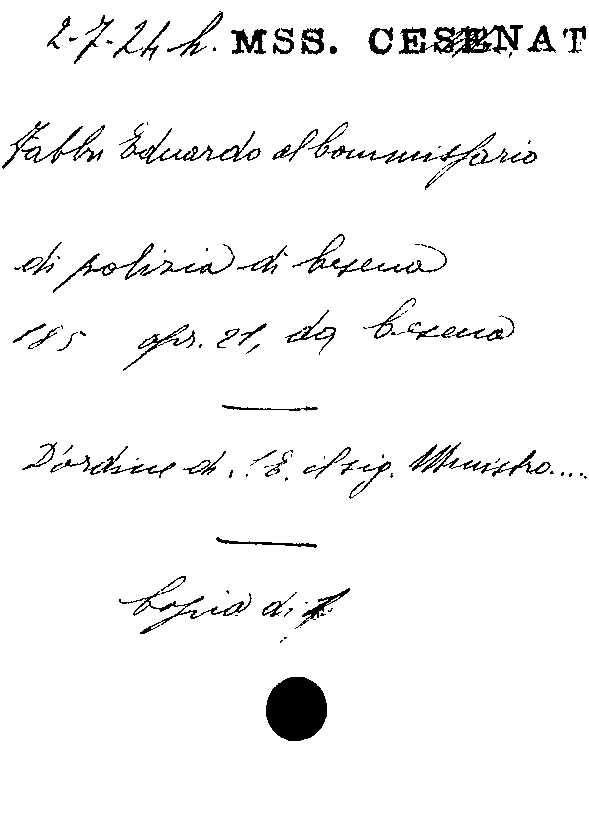 2-7-24 h. MSS. CESENAT
Fabbri Eduardo al Commissario
di polizia di Cesena
185 apr. 21, da Cesena
D'ordine di S.E. il sig. Ministro....
Copia di